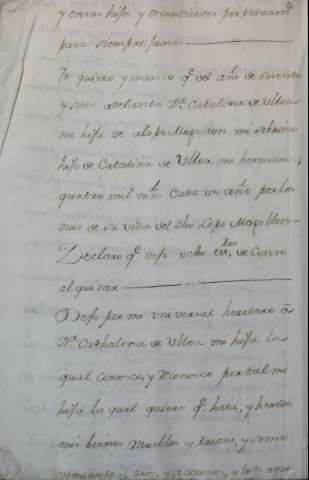 y en sus hijos y decendientes perpetuam.
para siempre jamas
Yt quiero y mando q.e del año de sesenta
y seis adelante D.a Catalina de Ulloa
mi hija de a Lope Mogollon mi sobrino
hijo de Catalina de Ulloa mi hermana,
quatro mil mrs Cada un año por los
dias de su vida del dho Lope Mogollon
Declaro q.e dejo ocho de Censo
al quitar
Dejo por mi universal heredero à
D.a Cathalina de Ulloa mi hija la
qual Conosco, y Reconosco por tal mi
hija la qual quiero q.e haia, y herede
mis bienes Muebles y raices, y semo
vimientes, dros, y acciones, y todo